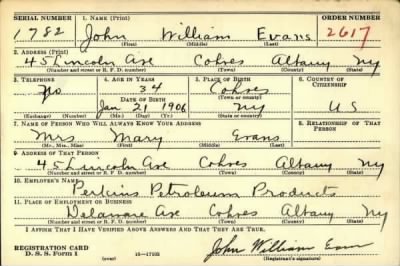 SERIAL NUMBER 1. NAME (Print) ORDER NUMBER
1782 John William Evans 2617
(First) (Middle) (Last)
2. ADDRESS (Print)
45 Lincoln Ave Cohoes Albany Ny
(Number and street or R. F. D. number) (Town) (County) (State)
3. TELEPHONE 4. AGE IN YEARS 5. PLACE OF BIRTH 6. COUNTRY OF CITIZENSHIP
no 34 Cohoes
(Town or county)
DATE OF BIRTH
Jan 21 1906 Ny U S
(Exchange) (Number) (Mo.) (Day) (Yr.) (State or country)
7. NAME OF PERSON WHO WILL ALWAYS KNOW YOUR ADDRESS 8. RELATIONSHIP OF THAT PERSON
Mrs Mary Evans
(Mr., Mrs., Miss) (First) (Middle) (Last)
9. ADDRESS OF THAT PERSON
45 Lincoln Ave Cohoes Albany Ny
(Number and street or R. F. D. number) (Town) (County) (State)
10. EMPLOYER'S NAME
Perkins Petroleum Products
11. PLACE OF EMPLOYMENT OR BUSINESS
Delaware Ave Cohoes Albany Ny
(Number and street or R. F. D. number) (Town) (County) (State)
I AFFIRM THAT I HAVE VERIFIED ABOVE ANSWERS AND THAT THEY ARE TRUE.
REGISTRATION CARD
D. S. S. Form 1 (over) 16—17105 John William Evans
(Registrant's signature)